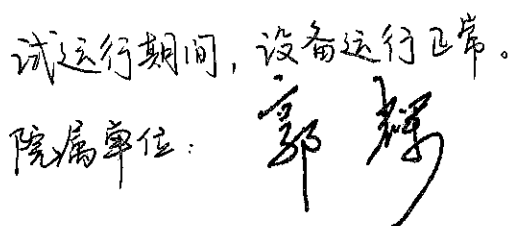 试运行期间，设备运行正常。
院属单位：郭辉